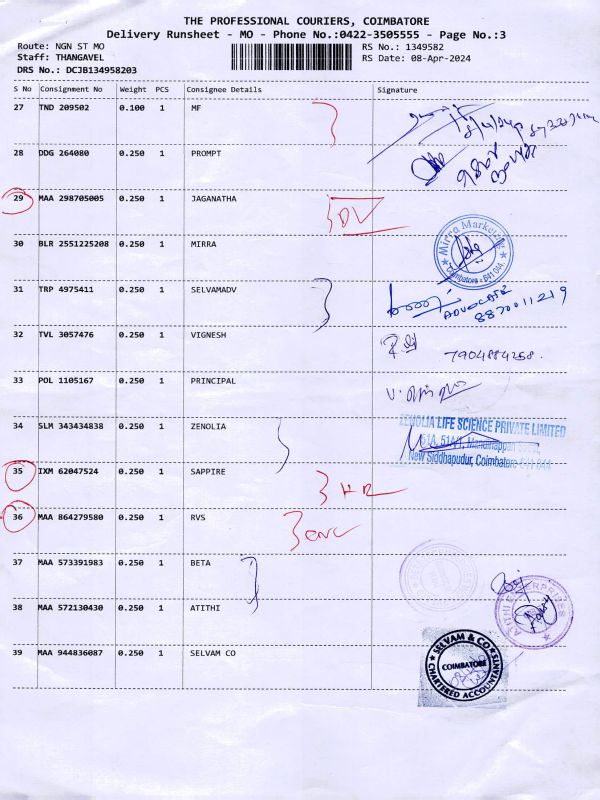 THE PROFESSIONAL COURIERS, COIMBATORE
Delivery Runsheet - MO - Phone No.:0422-3505555 - Page No.:3
Route: NGN ST MO RS No.: 1349582
Staff: THANGAVEL RS Date: 08-Apr-2024
DRS No.: DCJB134958203
S No Consignment No Weight PCS Consignee Details Signature
27 TND 209502 0.100 1 MF
28 DDG 264080 0.250 1 PROMPT
29 MAA 298705005 0.250 1 JAGANATHA
DV
30 BLR 2551225208 0.250 1 MIRRA
Mirra Marketing
Coimbatore - 641 044.
31 TRP 4975411 0.250 1 SELVAMADV
ADVOCATE
8870011219
32 TVL 3057476 0.250 1 VIGNESH
7904884258.
33 POL 1105167 0.250 1 PRINCIPAL
34 SLM 343434838 0.250 1 ZENOLIA
ZENOLIA LIFE SCIENCE PRIVATE LIMITED
New Siddhapudur, Coimbatore 641 044
35 IXM 62047524 0.250 1 SAPPIRE
36 MAA 864279580 0.250 1 RVS
37 MAA 573391983 0.250 1 BETA
38 MAA 572130430 0.250 1 ATITHI
ATITHI ENTERPRISES
39 MAA 944836087 0.250 1 SELVAM CO
SELVAM & CO
COIMBATORE
CHARTERED ACCOUNTANTS